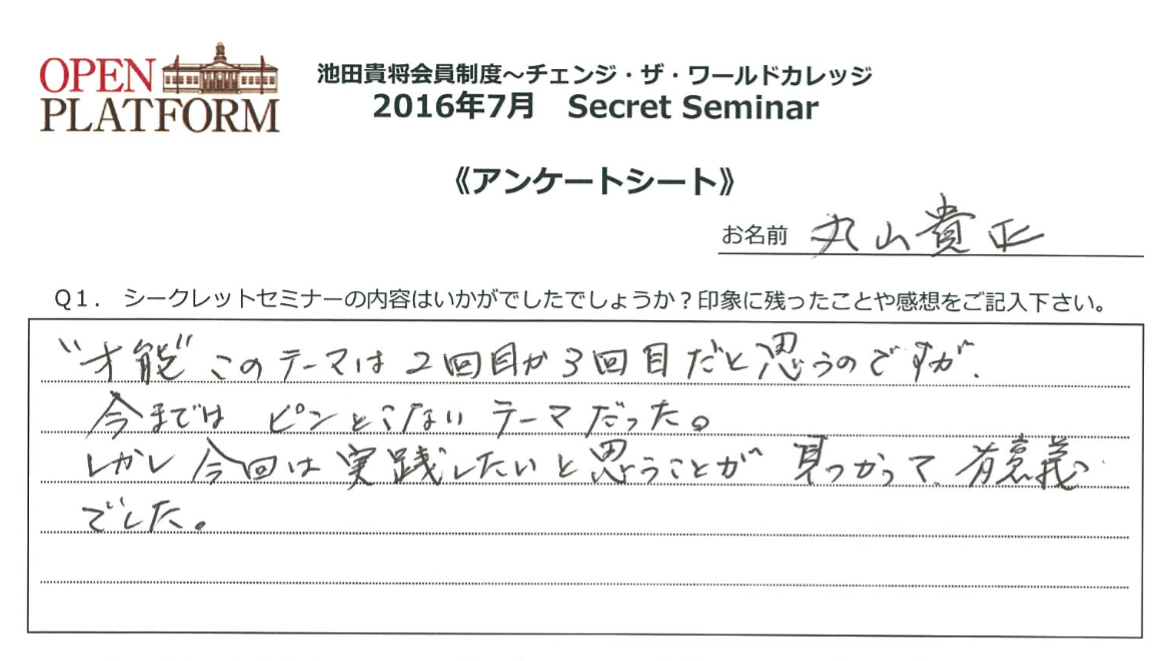 OPEN
PLATFORM
池田貴将会員制度～チェンジ・ザ・ワールドカレッジ
2016年7月 Secret Seminar
《アンケートシート》
お名前 丸山貴正
Q1. シークレットセミナーの内容はいかがでしたでしょうか？印象に残ったことや感想をご記入下さい。
"才能" このテーマは2回目か3回目だと思うのですが、
今までは ピンとこないテーマだった。
しかし今回は実践したいと思うことが 見つかって、有意義
でした。